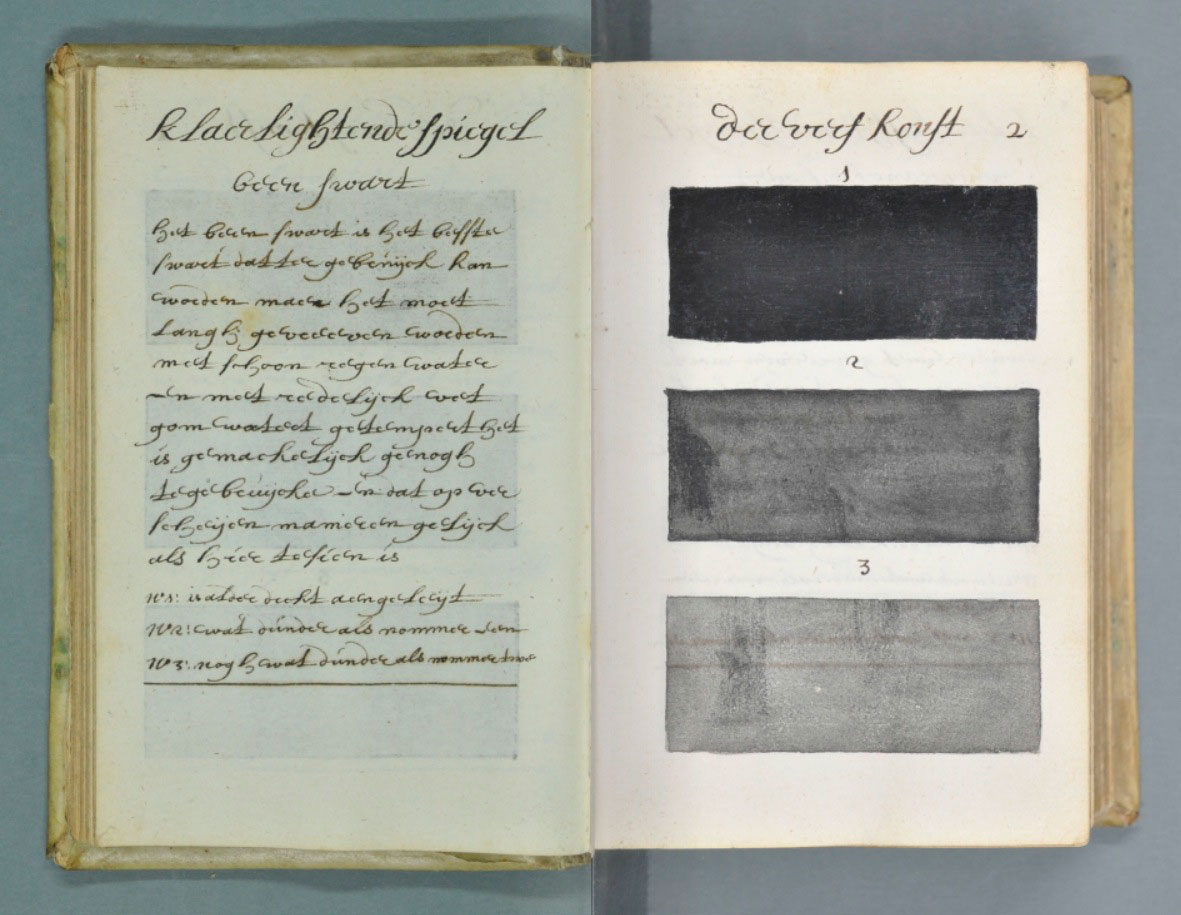 klaerlightende spiegel
been swart
het been swart is het besste
swart datter gebruijck kan
worden maer het moet
langh gevreeven worden
met schoon regen water
en met redelijck vet
gom waeter getempert het
is gemackelijck genogh
te gebruijcke en dat op ver
scheijen manieren gelijck
als hier te sien is
N1: is alder deckt aengeleijt
N2: wat dunder als nommer een
N3: nogh wat dunder als nommer twe
der verf konst 2
1
2
3